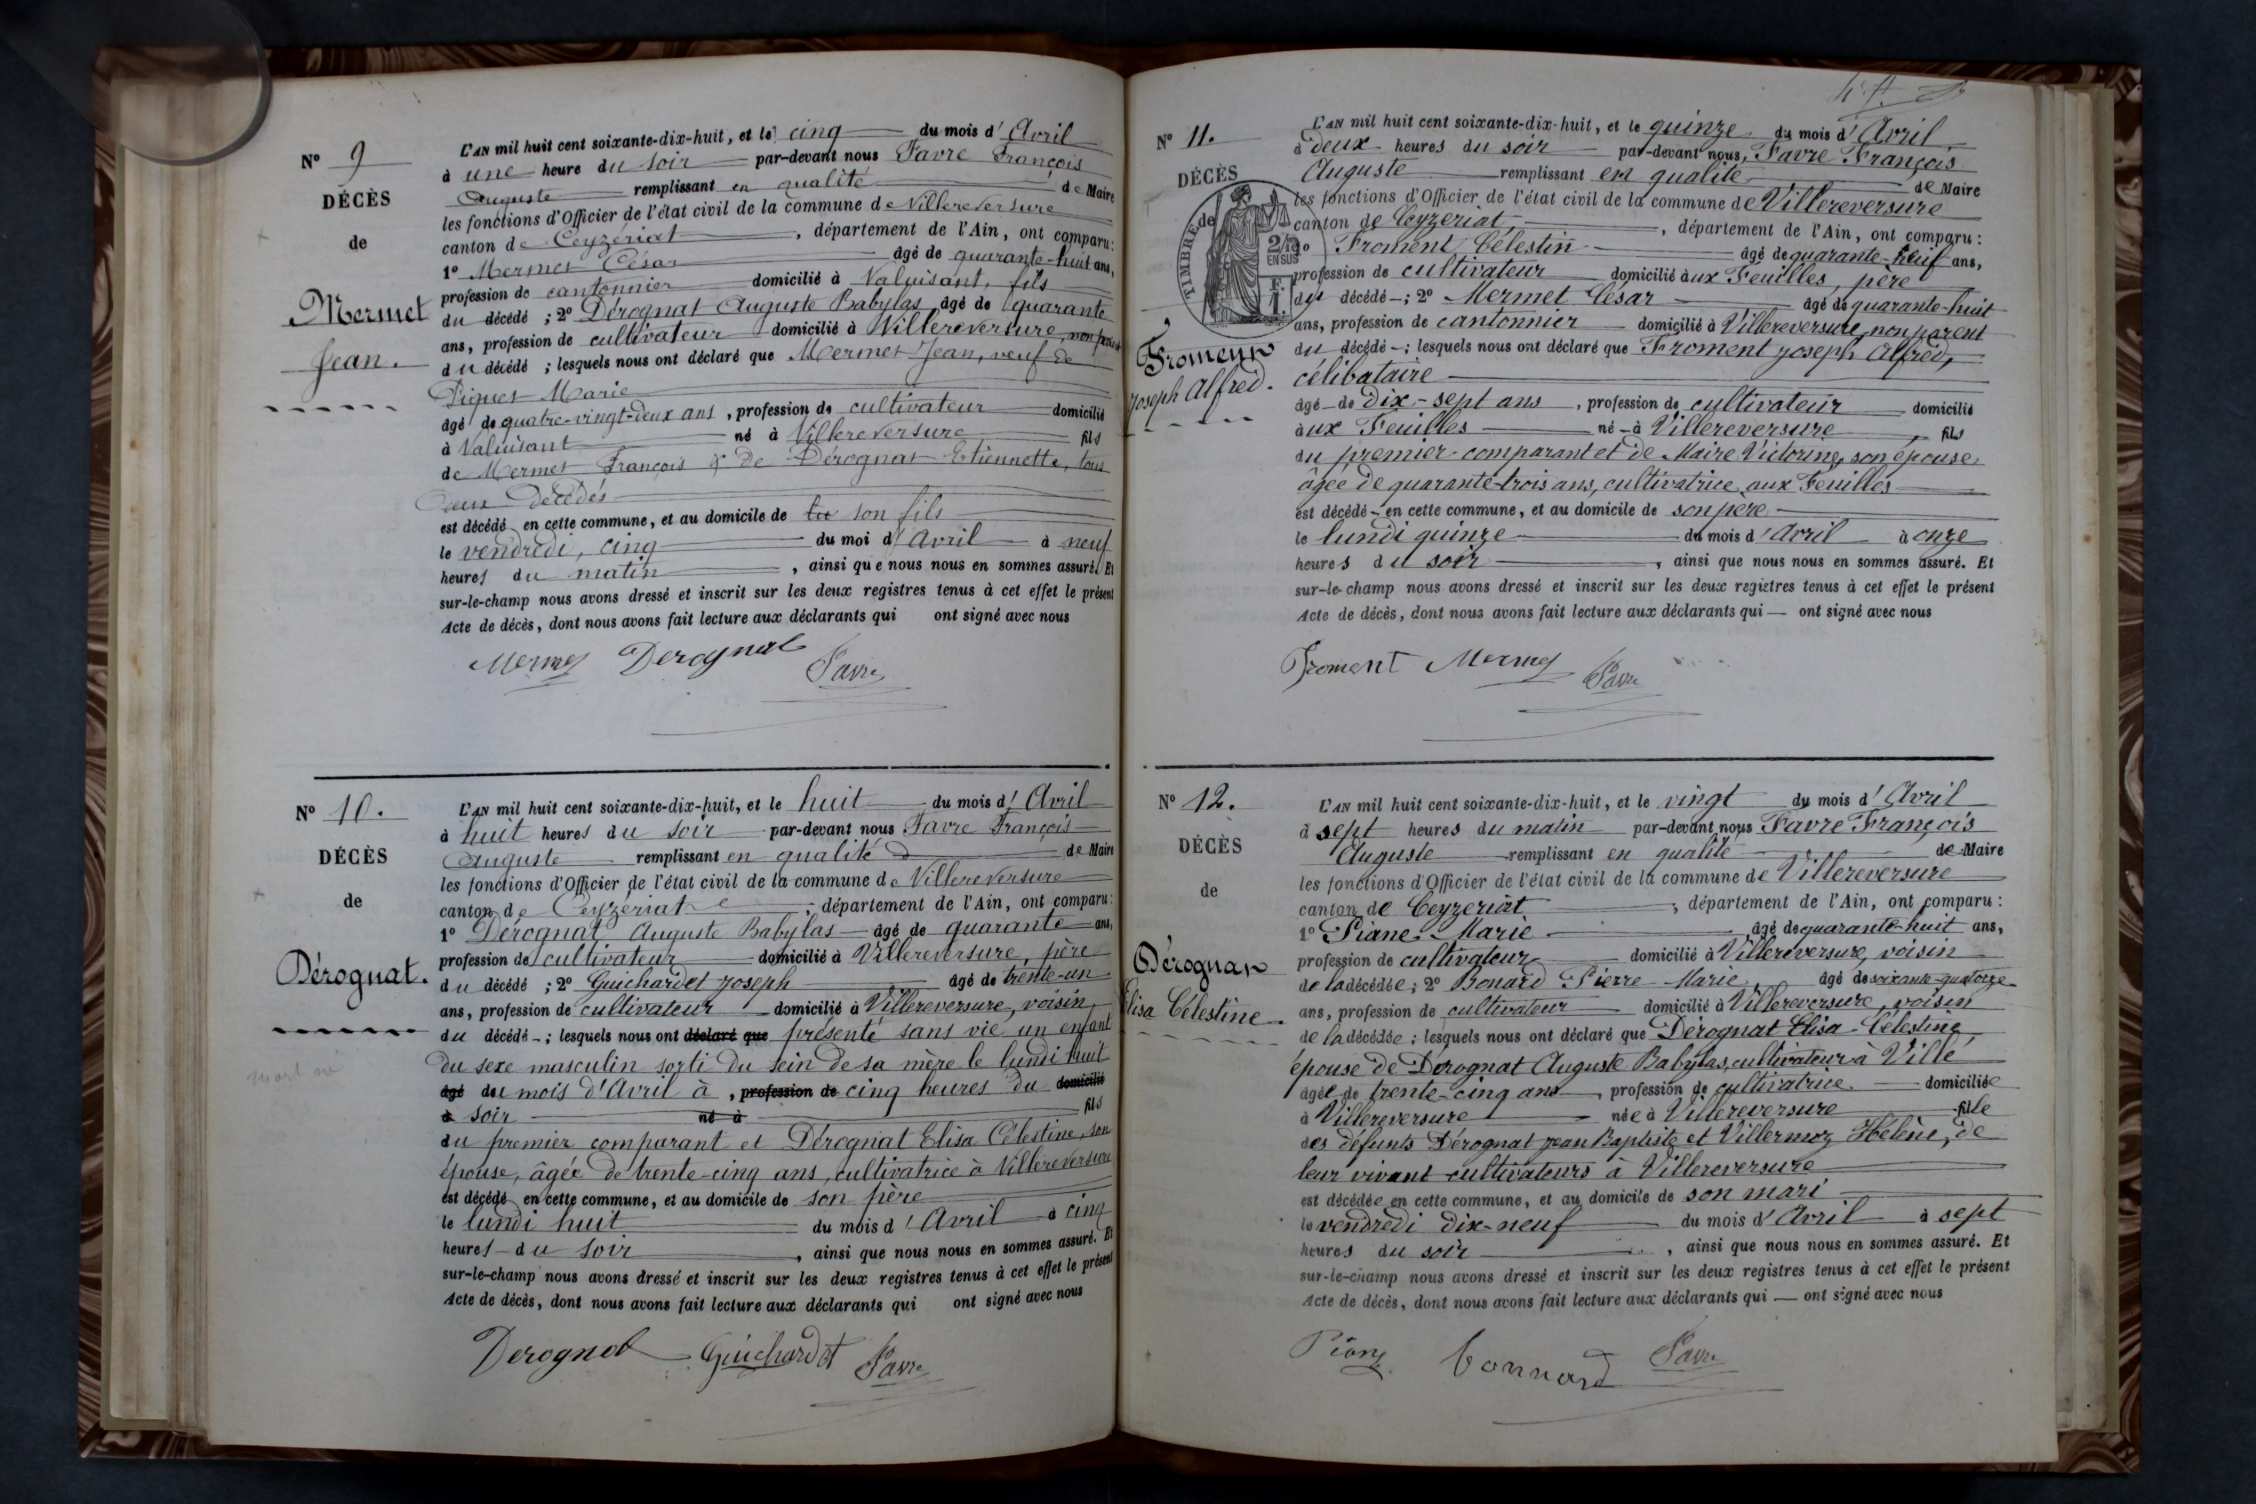 N° 9
DÉCÈS
de
Mermet
Jean.
L'AN mil huit cent soixante-dix-huit, et le cinq du mois d'Avril
à une heure du soir par-devant nous Favre François
Auguste remplissant en qualité de Maire
les fonctions d'Officier de l'état civil de la commune de Villereversure
canton de Ceyzériat, département de l'Ain, ont comparu:
1° Mermet César âgé de quarante-huit ans,
profession de cantonnier domicilié à Valuisant, fils
du décédé ; 2° Dérognat Auguste Babylas âgé de quarante
ans, profession de cultivateur domicilié à Villereversure, non parent
du décédé ; lesquels nous ont déclaré que Mermet Jean, veuf de
Marie
âgé de quatre-vingt-deux ans, profession de cultivateur domicilié
à Valuisant né à Villereversure fils
de Mermet François & de Dérognat Etiennette, tous
deux décédés
est décédé en cette commune, et au domicile de son fils
le vendredi, cinq du moi d'Avril à neuf
heures du matin, ainsi que nous nous en sommes assuré. Et
sur-le-champ nous avons dressé et inscrit sur les deux registres tenus à cet effet le présent
Acte de décès, dont nous avons fait lecture aux déclarants qui ont signé avec nous
Mermet Derognat Favre
N° 10.
DÉCÈS
de
Dérognat.
mort né
L'AN mil huit cent soixante-dix-huit, et le huit du mois d'Avril
à huit heures du soir par-devant nous Favre François
Auguste remplissant en qualité de Maire
les fonctions d'Officier de l'état civil de la commune de Villereversure
canton de Ceyzériat, département de l'Ain, ont comparu:
1° Dérognat Auguste Babylas âgé de quarante ans,
profession de cultivateur domicilié à Villereversure, père
du décédé ; 2° Guichardet Joseph âgé de trente-un
ans, profession de cultivateur domicilié à Villereversure, voisin
du décédé ; lesquels nous ont déclaré que présenté sans vie un enfant
du sexe masculin sorti du sein de sa mère le lundi huit
âgé du mois d'Avril à, profession de cinq heures du domicilié
à soir né à fils
du premier comparant et Dérognat Elisa Célestine, son
épouse, âgée de trente-cinq ans, cultivatrice à Villereversure
est décédé en cette commune, et au domicile de son père
le lundi huit du mois d'Avril à cinq
heures du soir, ainsi que nous nous en sommes assuré. Et
sur-le-champ nous avons dressé et inscrit sur les deux registres tenus à cet effet le présent
Acte de décès, dont nous avons fait lecture aux déclarants qui ont signé avec nous
Derognat Guichardet Favre
N° 11.
DÉCÈS
TIMBRE de
2/10 EN SUS
Froment
Joseph Alfred.
L'AN mil huit cent soixante-dix-huit, et le quinze du mois d'Avril
à deux heures du soir par-devant nous, Favre François
Auguste remplissant en qualité de Maire
les fonctions d'Officier de l'état civil de la commune de Villereversure
canton de Ceyzeriat, département de l'Ain, ont comparu:
1° Froment Célestin âgé de quarante-neuf ans,
profession de cultivateur domicilié aux Feuilles, père
du décédé ; 2° Mermet César âgé de quarante-huit
ans, profession de cantonnier domicilié à Villereversure, non parent
du décédé ; lesquels nous ont déclaré que Froment Joseph Alfred,
célibataire
âgé de dix-sept ans, profession de cultivateur domicilié
aux Feuilles né à Villereversure, fils
du premier comparant et de Maire Victorine, son épouse,
âgée de quarante-trois ans, cultivatrice aux Feuilles
est décédé en cette commune, et au domicile de son père
le lundi quinze du mois d'Avril à onze
heures du soir, ainsi que nous nous en sommes assuré. Et
sur-le-champ nous avons dressé et inscrit sur les deux registres tenus à cet effet le présent
Acte de décès, dont nous avons fait lecture aux déclarants qui — ont signé avec nous
Froment Mermet Favre
N° 12.
DÉCÈS
de
Dérognat
Elisa Célestine
L'AN mil huit cent soixante-dix-huit, et le vingt du mois d'Avril
à sept heures du matin par-devant nous Favre François
Auguste remplissant en qualité de Maire
les fonctions d'Officier de l'état civil de la commune de Villereversure
canton de Ceyzeriat, département de l'Ain, ont comparu:
1° Marie âgé de quarante-huit ans,
profession de cultivateur domicilié à Villereversure, voisin
de la décédée ; 2° Bonard Pierre Marie âgé de soixante-quatorze
ans, profession de cultivateur domicilié à Villereversure, voisin
de la décédée ; lesquels nous ont déclaré que Dérognat Elisa Célestine,
épouse de Dérognat Auguste Babylas, cultivateur à Ville
âgée de trente-cinq ans, profession de cultivatrice domiciliée
à Villereversure née à Villereversure fille
des défunts Dérognat Jean Baptiste et Villermoz Hélène, de
leur vivant cultivateurs à Villereversure
est décédée en cette commune, et au domicile de son mari
le vendredi dix-neuf du mois d'Avril à sept
heures du soir, ainsi que nous nous en sommes assuré. Et
sur-le-champ nous avons dressé et inscrit sur les deux registres tenus à cet effet le présent
Acte de décès, dont nous avons fait lecture aux déclarants qui — ont signé avec nous
bonnard Favre